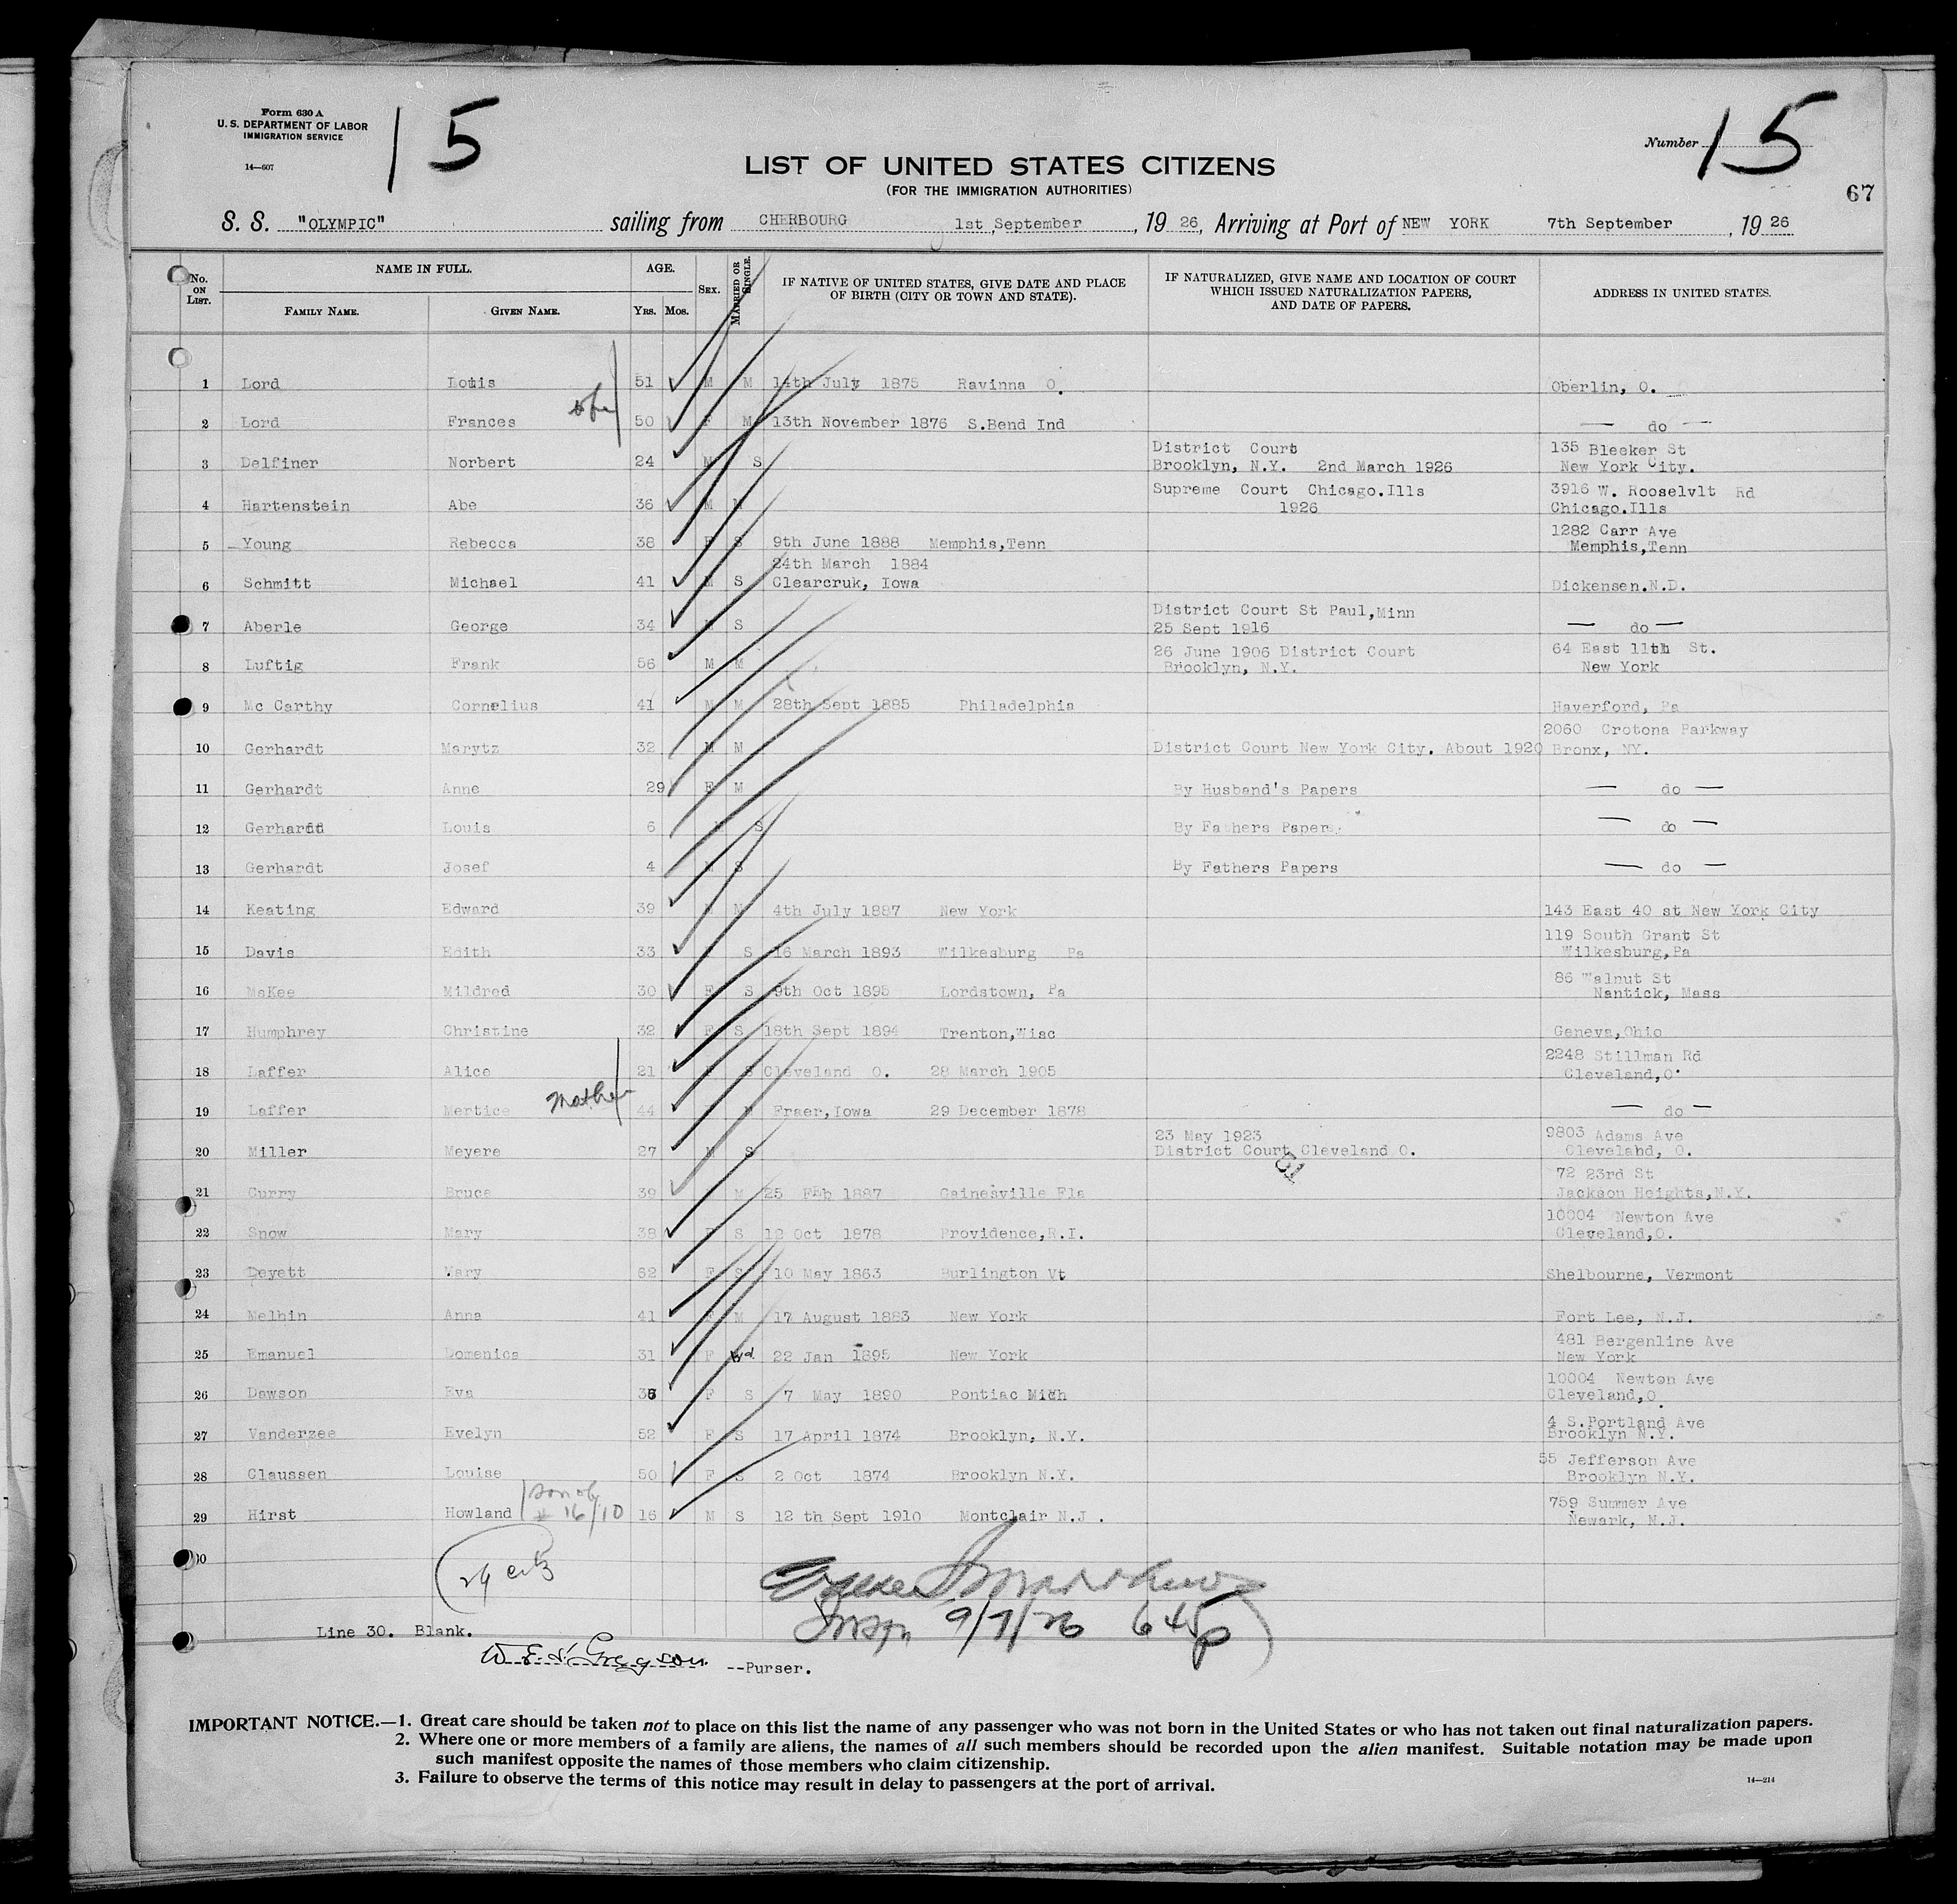 Form 630 A
U. S. DEPARTMENT OF LABOR
IMMIGRATION SERVICE
14—607
15
Number 15
67
LIST OF UNITED STATES CITIZENS
(FOR THE IMMIGRATION AUTHORITIES)
S. S. "OLYMPIC" sailing from CHERBOURG 1st September, 19 26, Arriving at Port of NEW YORK 7th September, 19 26
No. ON LIST. NAME IN FULL. FAMILY NAME. GIVEN NAME. AGE. YRS. MOS. SEX. MARRIED OR SINGLE. IF NATIVE OF UNITED STATES, GIVE DATE AND PLACE OF BIRTH (CITY OR TOWN AND STATE). IF NATURALIZED, GIVE NAME AND LOCATION OF COURT WHICH ISSUED NATURALIZATION PAPERS, AND DATE OF PAPERS. ADDRESS IN UNITED STATES.
1 Lord Louis 51 M M 14th July 1875 Ravinna O. Oberlin, O.
2 Lord Frances 50 F M 13th November 1876 S.Bend Ind — do —
3 Delfiner Norbert 24 M S District Court Brooklyn, N.Y. 2nd March 1926 135 Bleeker St New York City.
4 Hartenstein Abe 36 M M Supreme Court Chicago.Ills 1926 3916 W. Rooselvlt Rd Chicago.Ills
5 Young Rebecca 38 F S 9th June 1888 Memphis,Tenn 1282 Carr Ave Memphis,Tenn
6 Schmitt Michael 41 M S 24th March 1884 Clearcruk, Iowa Dickensen.N.D.
7 Aberle George 34 M S District Court St Paul,Minn 25 Sept 1916 — do —
8 Luftig Frank 56 M M 26 June 1906 District Court Brooklyn, N.Y. 64 East 11th St. New York
9 Mc Carthy Cornelius 41 M M 28th Sept 1885 Philadelphia Haverford, Pa
10 Gerhardt Marytz 32 M M District Court New York City. About 1920 2060 Crotona Parkway Bronx, NY.
11 Gerhardt Anne 29 F M By Husband's Papers — do —
12 Gerhardt Louis 6 M S By Fathers Papers — do —
13 Gerhardt Josef 4 M S By Fathers Papers — do —
14 Keating Edward 39 M M 4th July 1887 New York 143 East 40 st New York City
15 Davis Edith 33 S 16 March 1893 Wilkesburg Pa 119 South Grant St Wilkesburg,Pa
16 McKee Mildred 30 F S 9th Oct 1895 Lordstown, Pa 86 Walnut St Nantick, Mass
17 Humphrey Christine 32 F S 18th Sept 1894 Trenton,Wisc Geneva,Ohio
18 Laffer Alice 21 F S Cleveland O. 28 March 1905 2248 Stillman Rd Cleveland,O.
19 Laffer Mertice Mother 44 M Fraer,Iowa 29 December 1878 — do —
20 Miller Meyere 27 M S 23 May 1923 District Court Cleveland O. 9803 Adams Ave Clevelabd, O.
21 Curry Bruce 39 M 25 Feb 1887 Gainesville Fla 72 23rd St Jackson Heights,N.Y.
22 Snow Mary 38 F S 12 Oct 1878 Providence,R.I. 10004 Newton Ave Cleveland,O.
23 Deyett Mary 62 F S 10 May 1863 Burlington Vt Shelbourne, Vermont
24 Melbin Anna 41 F M 17 August 1883 New York Fort Lee, N.J.
25 Emanuel Domenica 31 F Wd 22 Jan 1895 New York 481 Bergenline Ave New York
26 Dawson Eva 36 F S 7 May 1890 Pontiac Mich 10004 Newton Ave Cleveland,O.
27 Vanderzee Evelyn 52 F S 17 April 1874 Brooklyn, N.Y. 4 S.Portland Ave Brooklyn N.Y.
28 Claussen Louise 50 F S 2 Oct 1874 Brooklyn N.Y. 55 Jefferson Ave Brooklyn N.Y.
29 Hirst Howland son of # 16/10 16 M S 12 th Sept 1910 Montclair N.J . 759 Summer Ave Newark, N.J.
30
29 citz
Insp. 9/7/26 645p
Line 30. Blank.
W.E.S. Gregson. --Purser.
IMPORTANT NOTICE.—1. Great care should be taken not to place on this list the name of any passenger who was not born in the United States or who has not taken out final naturalization papers.
2. Where one or more members of a family are aliens, the names of all such members should be recorded upon the alien manifest. Suitable notation may be made upon
such manifest opposite the names of those members who claim citizenship.
3. Failure to observe the terms of this notice may result in delay to passengers at the port of arrival.
14—214